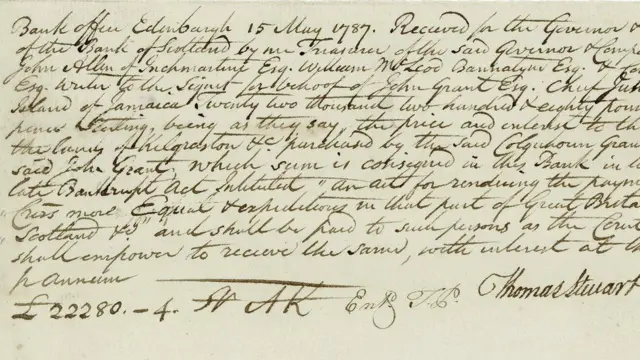 Bank office Edinburgh 15 May 1787. Recieved for the Governor &
of the Bank of Scotland by me Treasurer of the said Governor & Comp
John Allen of Inchmartine Esq. William McLeod Bannatyne Esq. &
Esq. Writer to the Signet for behoof of John Grant Esq. Chief Just
Island of Jamaica Twenty two thousand two hundred & eighty poun
pence Sterling, being as they say, the price and interest to th
the lands of Kilgraston &c purchased by the said Colquhoun Gran
said John Grant, which sum is consigned in this Bank in
late Bankrupt Act Intituled, "an act for rendering the paym
"Crs more Equal & expeditious in that part of Great Brita
"Scotland &c" and shall be paid to such persons as the Court
shall empower to recieve the same, with interest at th
p annum
£22280.-4. Wr AK Entd. T.P. Thomas Stuart